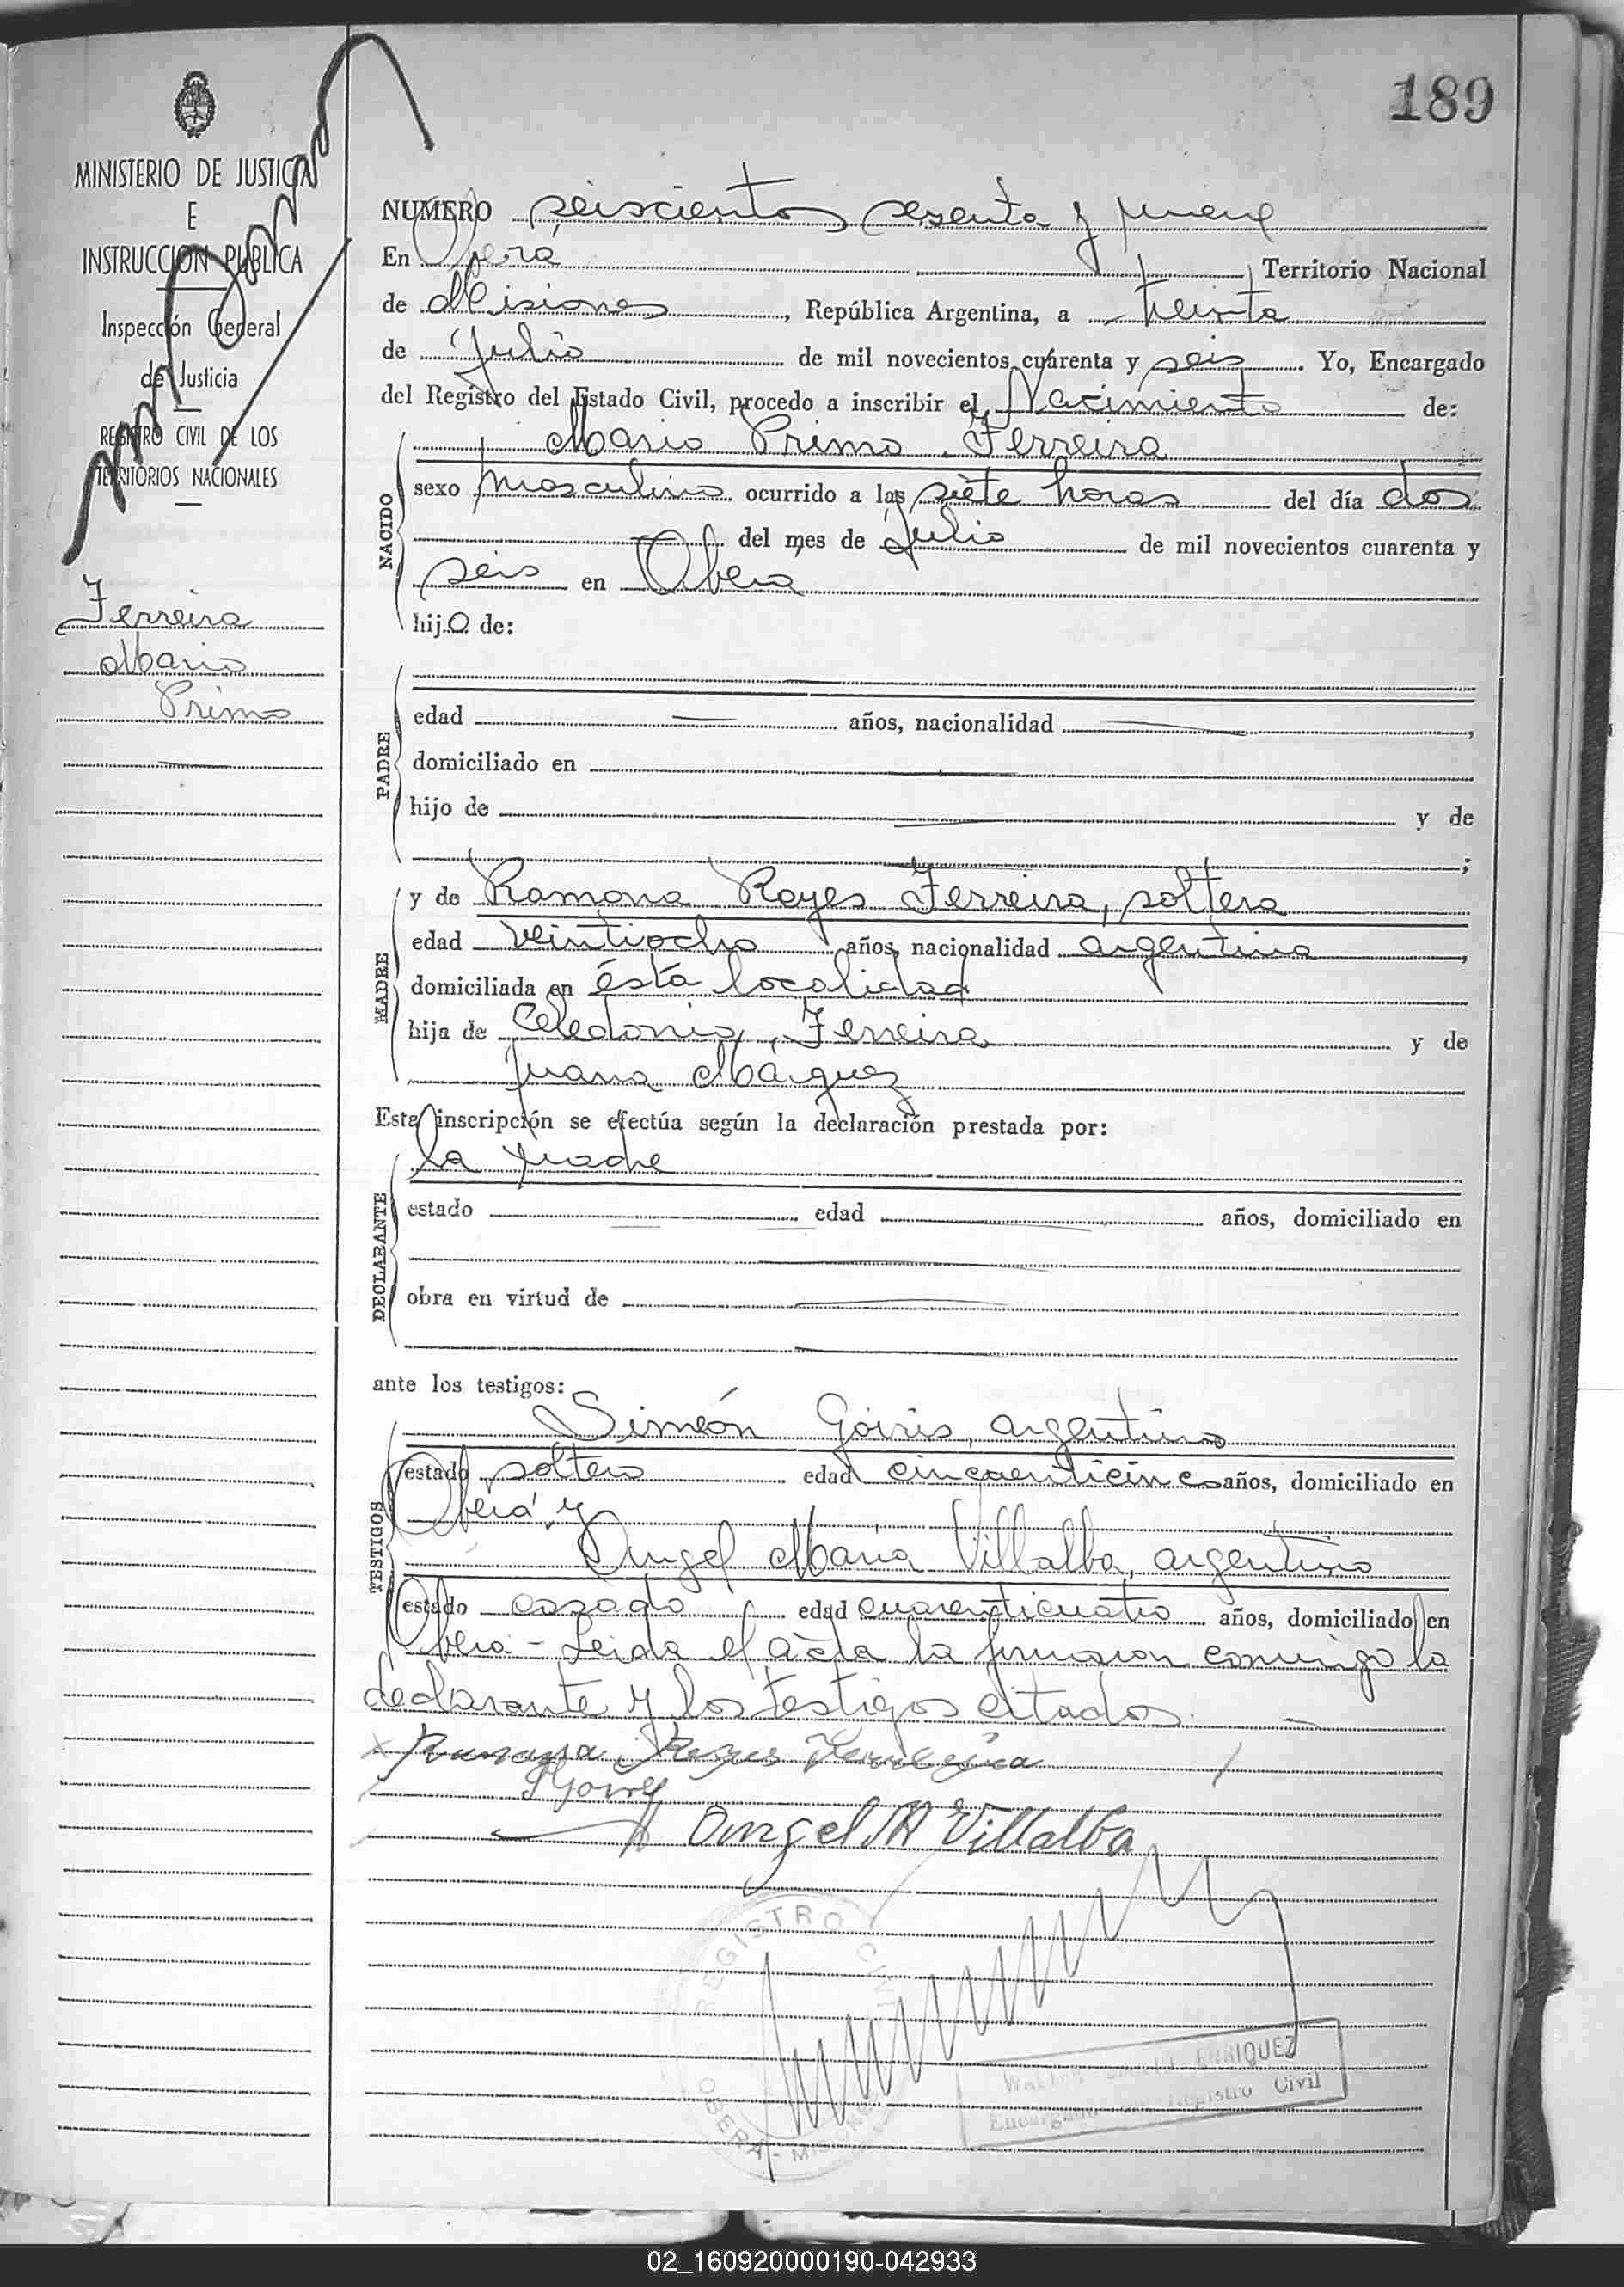 189
MINISTERIO DE JUSTICIA
E
INSTRUCCION PUBLICA
Inspección General
de Justicia
REGISTRO CIVIL DE LOS
TERRITORIOS NACIONALES
Ferreira
Mario
Primo
NUMERO seiscientos sesenta y nueve
En Oberá Territorio Nacional
de Misiones, República Argentina, a treinta
de Julio de mil novecientos cuarenta y seis. Yo, Encargado
del Registro del Estado Civil, procedo a inscribir el Nacimiento de:
Mario Primo Ferreira
NACIDO
sexo masculino ocurrido a las siete horas del día dos
del mes de Julio de mil novecientos cuarenta y
seis en Oberá
hijo de:
PADRE
edad años, nacionalidad ,
domiciliado en
hijo de y de
;
MADRE
y de Ramona Reyes Ferreira, soltera
edad veintiocho años, nacionalidad argentina,
domiciliada en ésta localidad
hija de Celedonio Ferreira y de
Juana Márquez
Esta inscripción se efectúa según la declaración prestada por:
la madre
DECLARANTE
estado edad años, domiciliado en
obra en virtud de
ante los testigos:
TESTIGOS
Simeón Goiris, argentino
estado soltero edad cincuenticinco años, domiciliado en
Oberá y
Angel María Villalba, argentino
estado casado edad cuarenticuatro años, domiciliado en
Oberá - Leida el acta la firmaron conmigo la
declarante y los testigos citados.
Ramona Reyes Ferreira
Angel M Villalba
REGISTRO CIVIL
OBERA - MISIONES
ENRIQUEZ
Encargado del Registro Civil
02_160920000190-042933